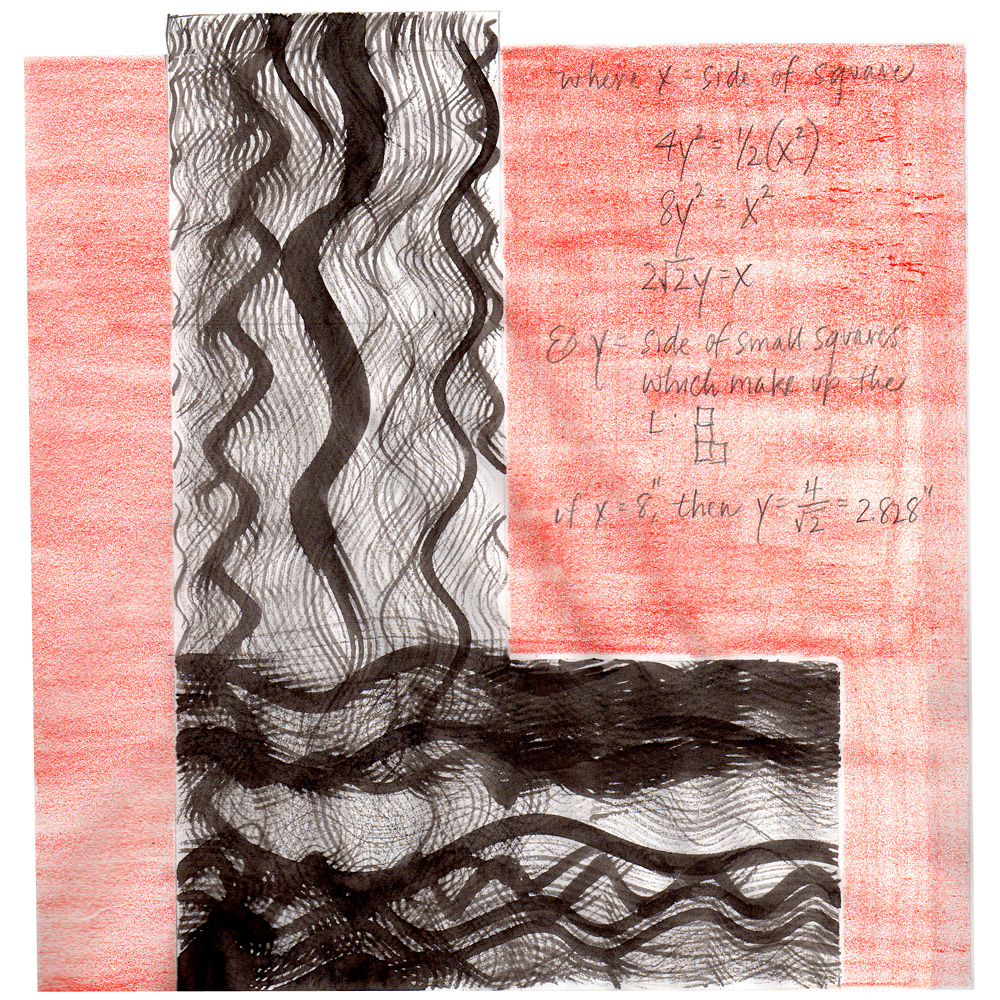 where x = side of square
4y² = 1/2(x²)
8y² = x²
2√2y = x
& y = side of small squares
which make up the
L:
if x = 8", then y = 4/√2 = 2.828"